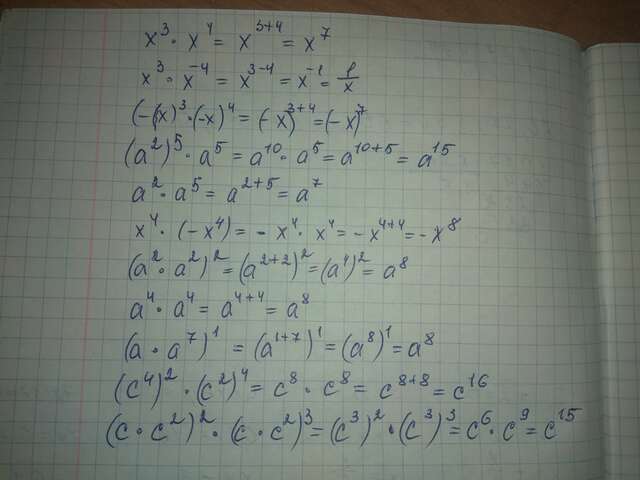 x³ · x⁴ = x³⁺⁴ = x⁷
x³ · x⁻⁴ = x³⁻⁴ = x⁻¹ = 1/x
(-(x)³ · (-x)⁴ = (-x)³⁺⁴ = (-x)⁷
(a²)⁵ · a⁵ = a¹⁰ · a⁵ = a¹⁰⁺⁵ = a¹⁵
a² · a⁵ = a²⁺⁵ = a⁷
x⁴ · (-x⁴) = - x⁴ · x⁴ = -x⁴⁺⁴ = -x⁸
(a² · a²)² = (a²⁺²)² = (a⁴)² = a⁸
a⁴ · a⁴ = a⁴⁺⁴ = a⁸
(a · a⁷)¹ = (a¹⁺⁷)¹ = (a⁸)¹ = a⁸
(c⁴)² · (c²)⁴ = c⁸ · c⁸ = c⁸⁺⁸ = c¹⁶
(c · c²)² · (c · c²)³ = (c³)² · (c³)³ = c⁶ · c⁹ = c¹⁵